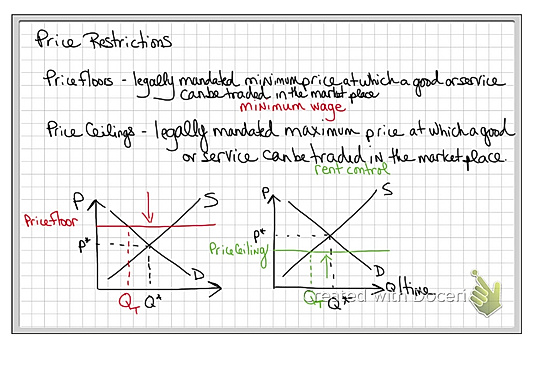 Price Restrictions
Price floors - legally mandated minimum price at which a good or service
can be traded in the market place
minimum wage
Price Ceilings - legally mandated maximum price at which a good
or service can be traded in the marketplace.
rent control
P S
Price floor
P*
D
QT Q*
P S
P*
Price Ceiling
D
QT Q* Q/time
Created with Doceri